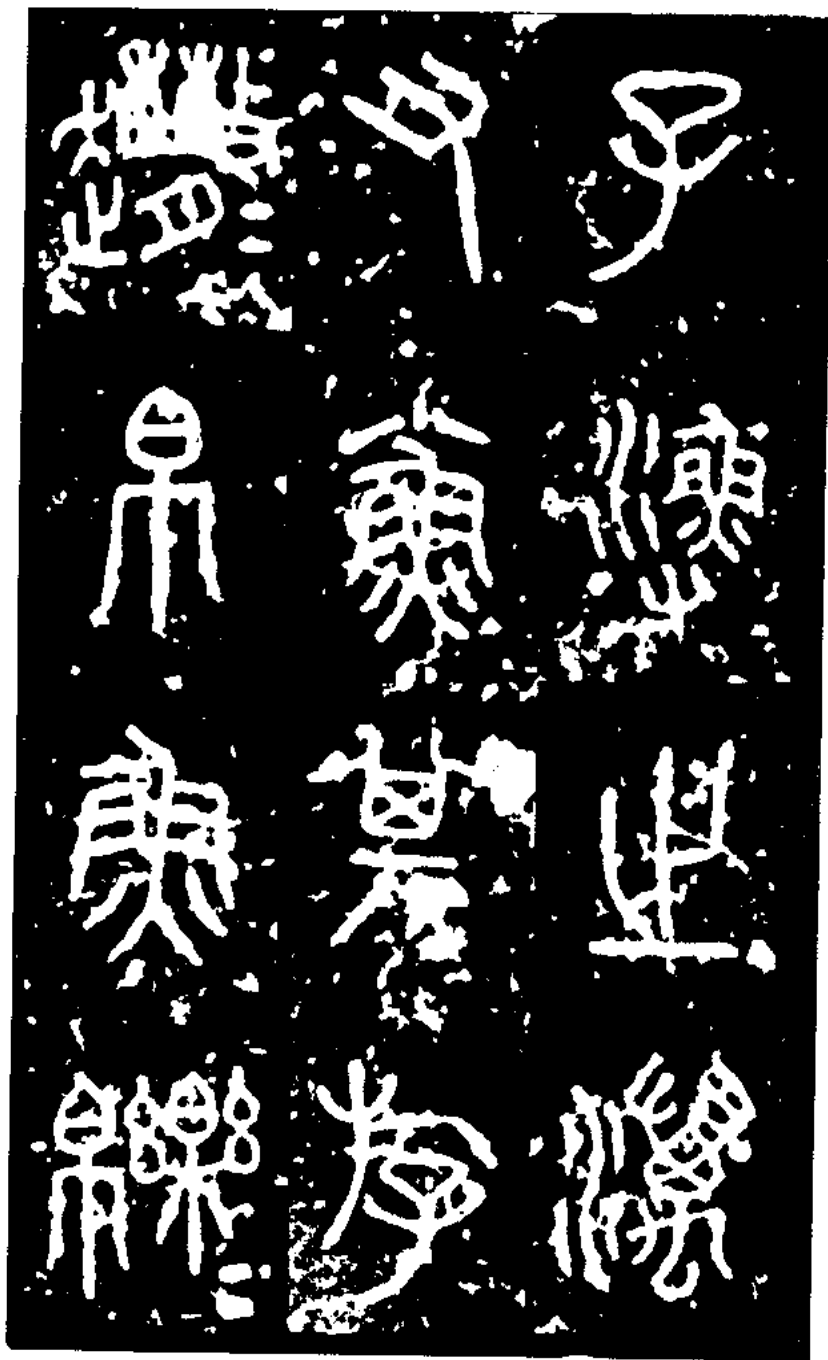 子漁之澫
又小魚其斿
帛魚皪＝